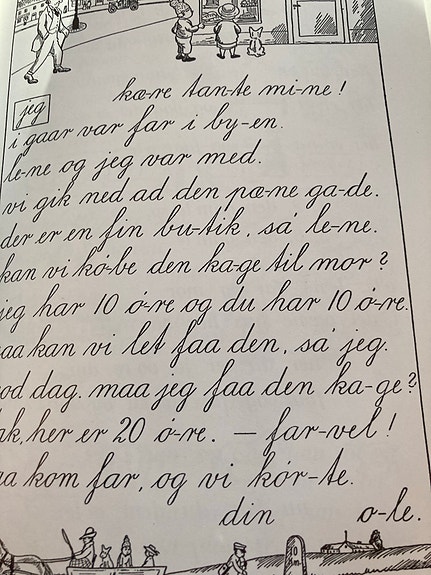 kæ-re tan-te mi-ne!
jeg
i gaar var far i by-en.
le-ne og jeg var med.
vi gik ned ad den pæ-ne ga-de.
der er en fin bu-tik, sa' le-ne.
kan vi kø-be den ka-ge til mor?
jeg har 10 ø-re og du har 10 ø-re.
saa kan vi let faa den, sa' jeg.
god dag. maa jeg faa den ka-ge?
tak, her er 20 ø-re. — far-vel!
saa kom far, og vi kør-te.
din o-le.